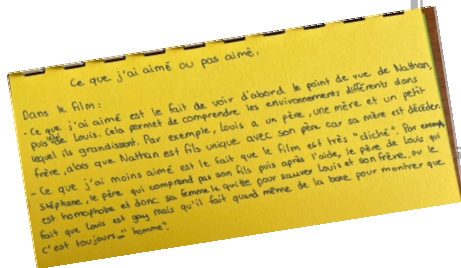 Ce que j'ai aimé ou pas aimé.
Dans le film:
- Ce que j'ai aimé est le fait de voir d'abord le point de vue de Nathan,
puis de Louis. Cela permet de comprendre les environnements différents dans
lequel ils grandissent. Par exemple, Louis a un père, une mère et un petit
frère, alors que Nathan est fils unique avec son père car sa mère est décéder.
- Ce que j'ai moins aimé est le fait que le film est très "cliché". Par exemple,
Stéphane, le père qui comprend pas son fils puis après l'aider, le père de Louis qui
est homophobe et donc sa femme le quitte pour sauver Louis et son frère, ou le
fait que Louis est gay mais qu'il fait quand même de la boxe pour montrer que
c'est toujours un "homme".